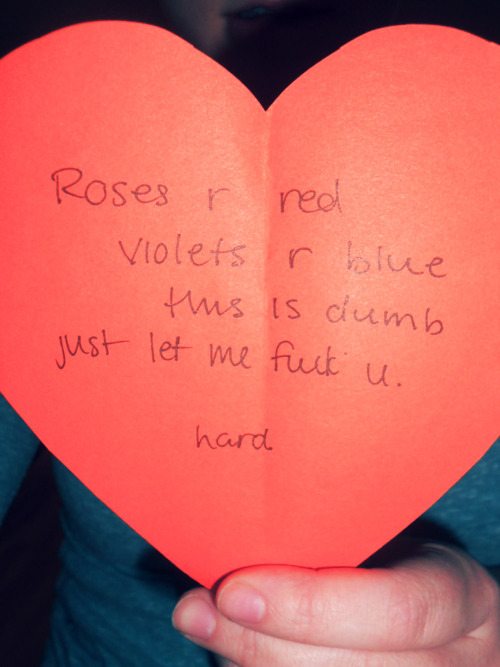 Roses r red
violets r blue
this is dumb
just let me fuck u.
hard.